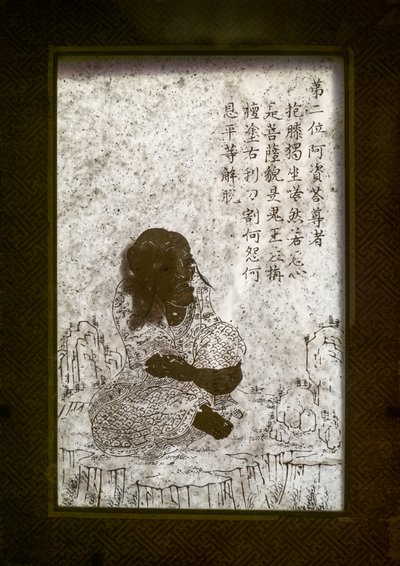 第二位阿資荅尊者
抱膝獨坐嗒然若忘心
是菩薩貌是鬼王左旃
檀塗右利刀割何怨何
恩平等解脫